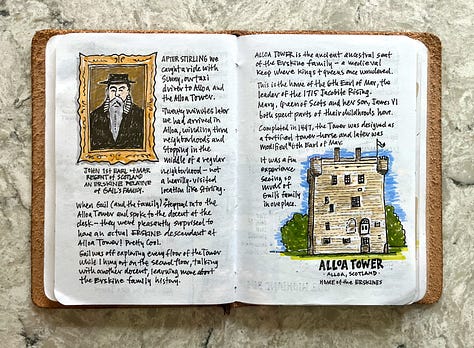 AFTER STIRLING we
caught a ride with
our taxi
driver to Alloa and
the Alloa Tower.
Twenty minutes later
we had arrived in
Alloa, winding thru
neighborhoods and
stopping in the
middle of a regular
neighborhood - not
a heavily-visited
location like Stirling.
JOHN 1ST EARL of MAR
REGENT of SCOTLAND
AN ERSKINE RELATIVE
OF GAIL'S FAMILY.
When Gail (and the family) stepped into the
Alloa Tower and spoke to the docent at the
desk - they were pleasantly surprised to
have an actual ERSKINE descendent at
Alloa Tower! Pretty cool.
Gail was off exploring every floor of the Tower
while I hung out on the second floor, talking
with another docent, learning more about
the Erskine family history.
ALLOA TOWER is the ancient ancestral seat
of the Erskine family - a medieval
keep where kings & queens once wandered.
This is the home of the 6th Earl of Mar, the
leader of the 1715 Jacobite Rising.
Mary, Queen of Scots and her son, James VI
both spent parts of their childhoods here.
Completed in 1497, the Tower was designed as
a fortified tower-house and later was
modified 6th Earl of Mar.
It was a fun
experience
seeing so
much of
Gail's family
in one place.
ALLOA TOWER
- ALLOA, SCOTLAND -
HOME of the ERSKINES